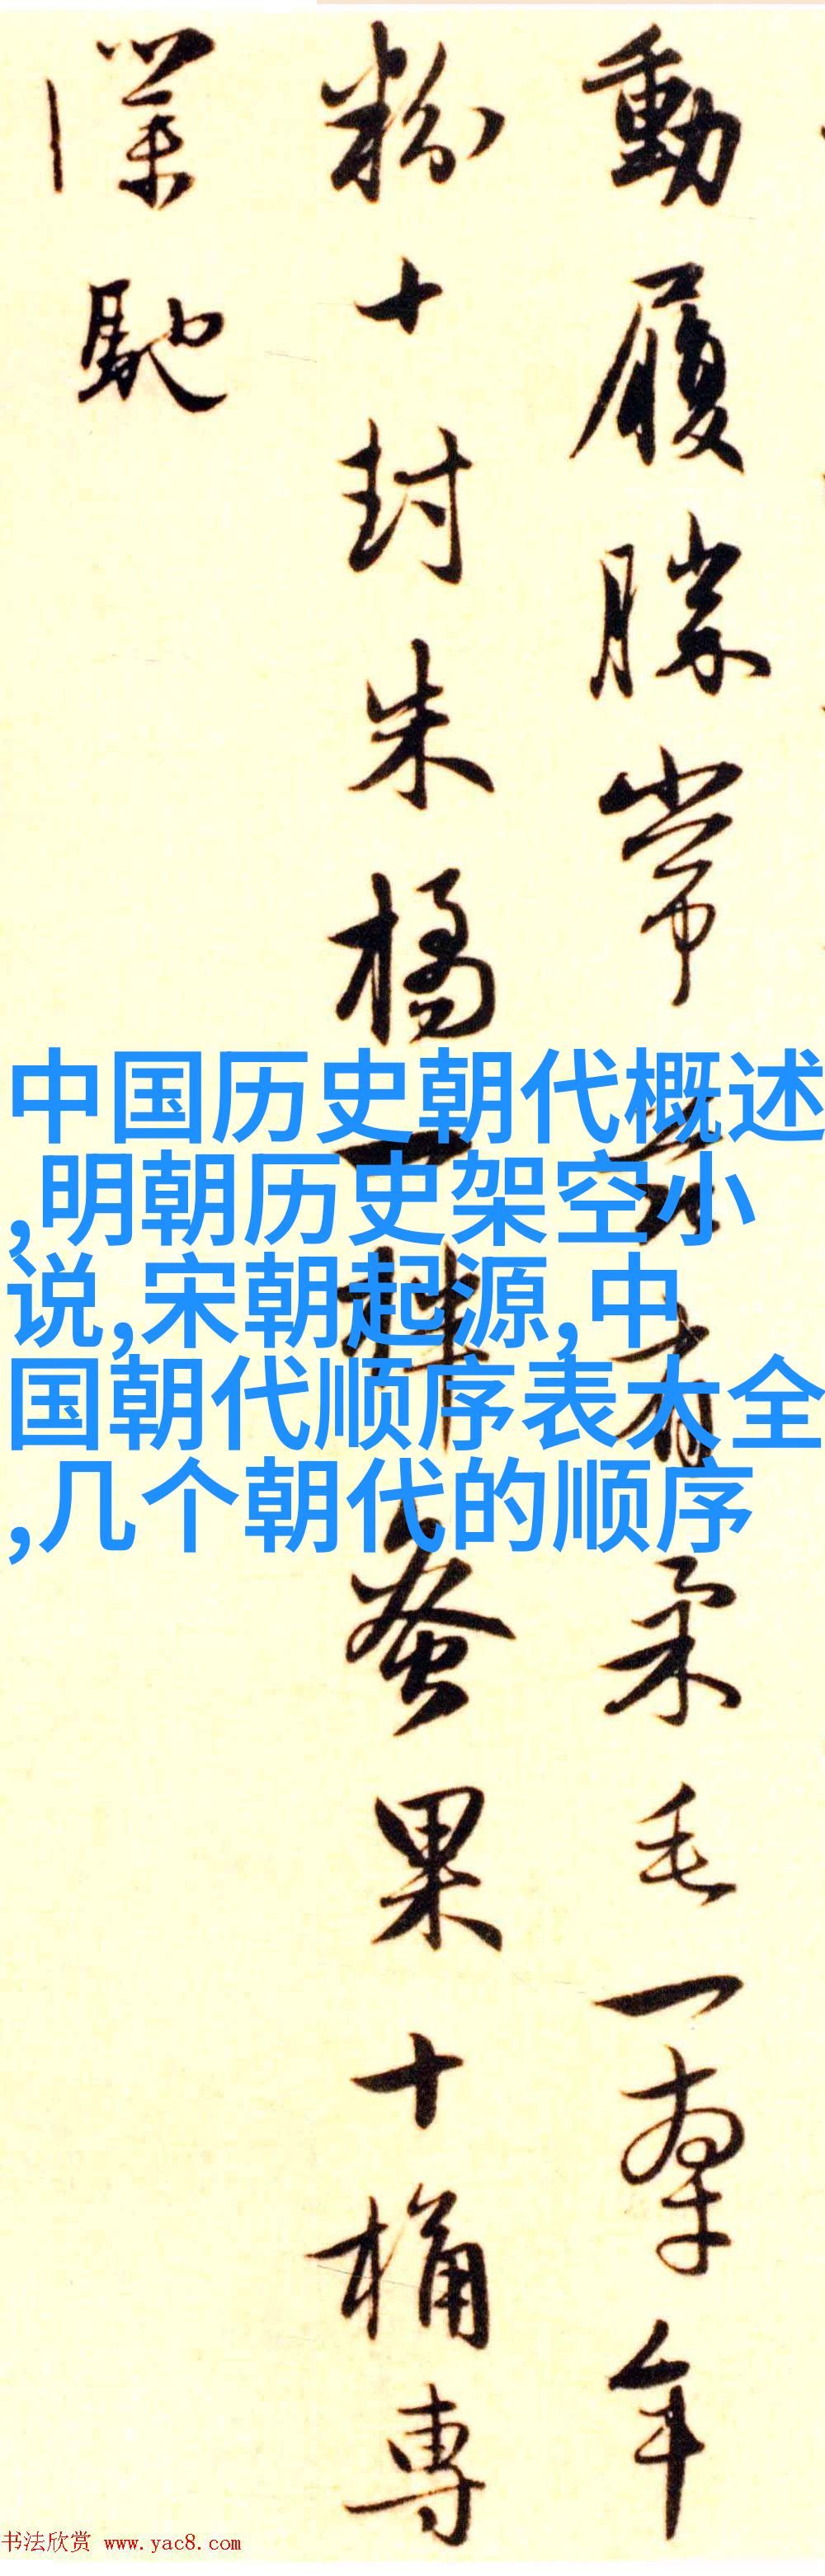 動履勝常 有柔毛一羣年
粉十封朱橘 蚕果十桶專
僕馳
中国历史朝代概述
,明朝历史架空小
说,宋朝起源,中
国朝代顺序表大全
,几个朝代的顺序
书法欣赏 www.yac8.com